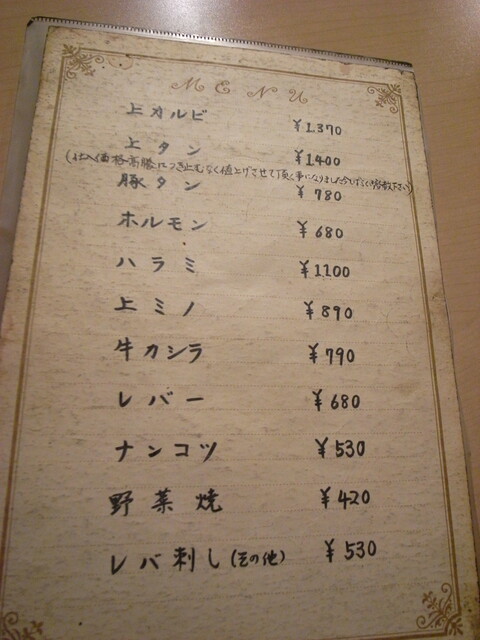 MENU
上カルビ ¥1,370
上タン ¥1400
(仕入価格高騰につき止むなく値上げさせて頂く事になりました
豚タン ¥780
ホルモン ¥680
ハラミ ¥1100
上ミノ ¥890
牛カシラ ¥790
レバー ¥680
ナンコツ ¥530
野菜焼 ¥420
レバ刺し(その他) ¥530